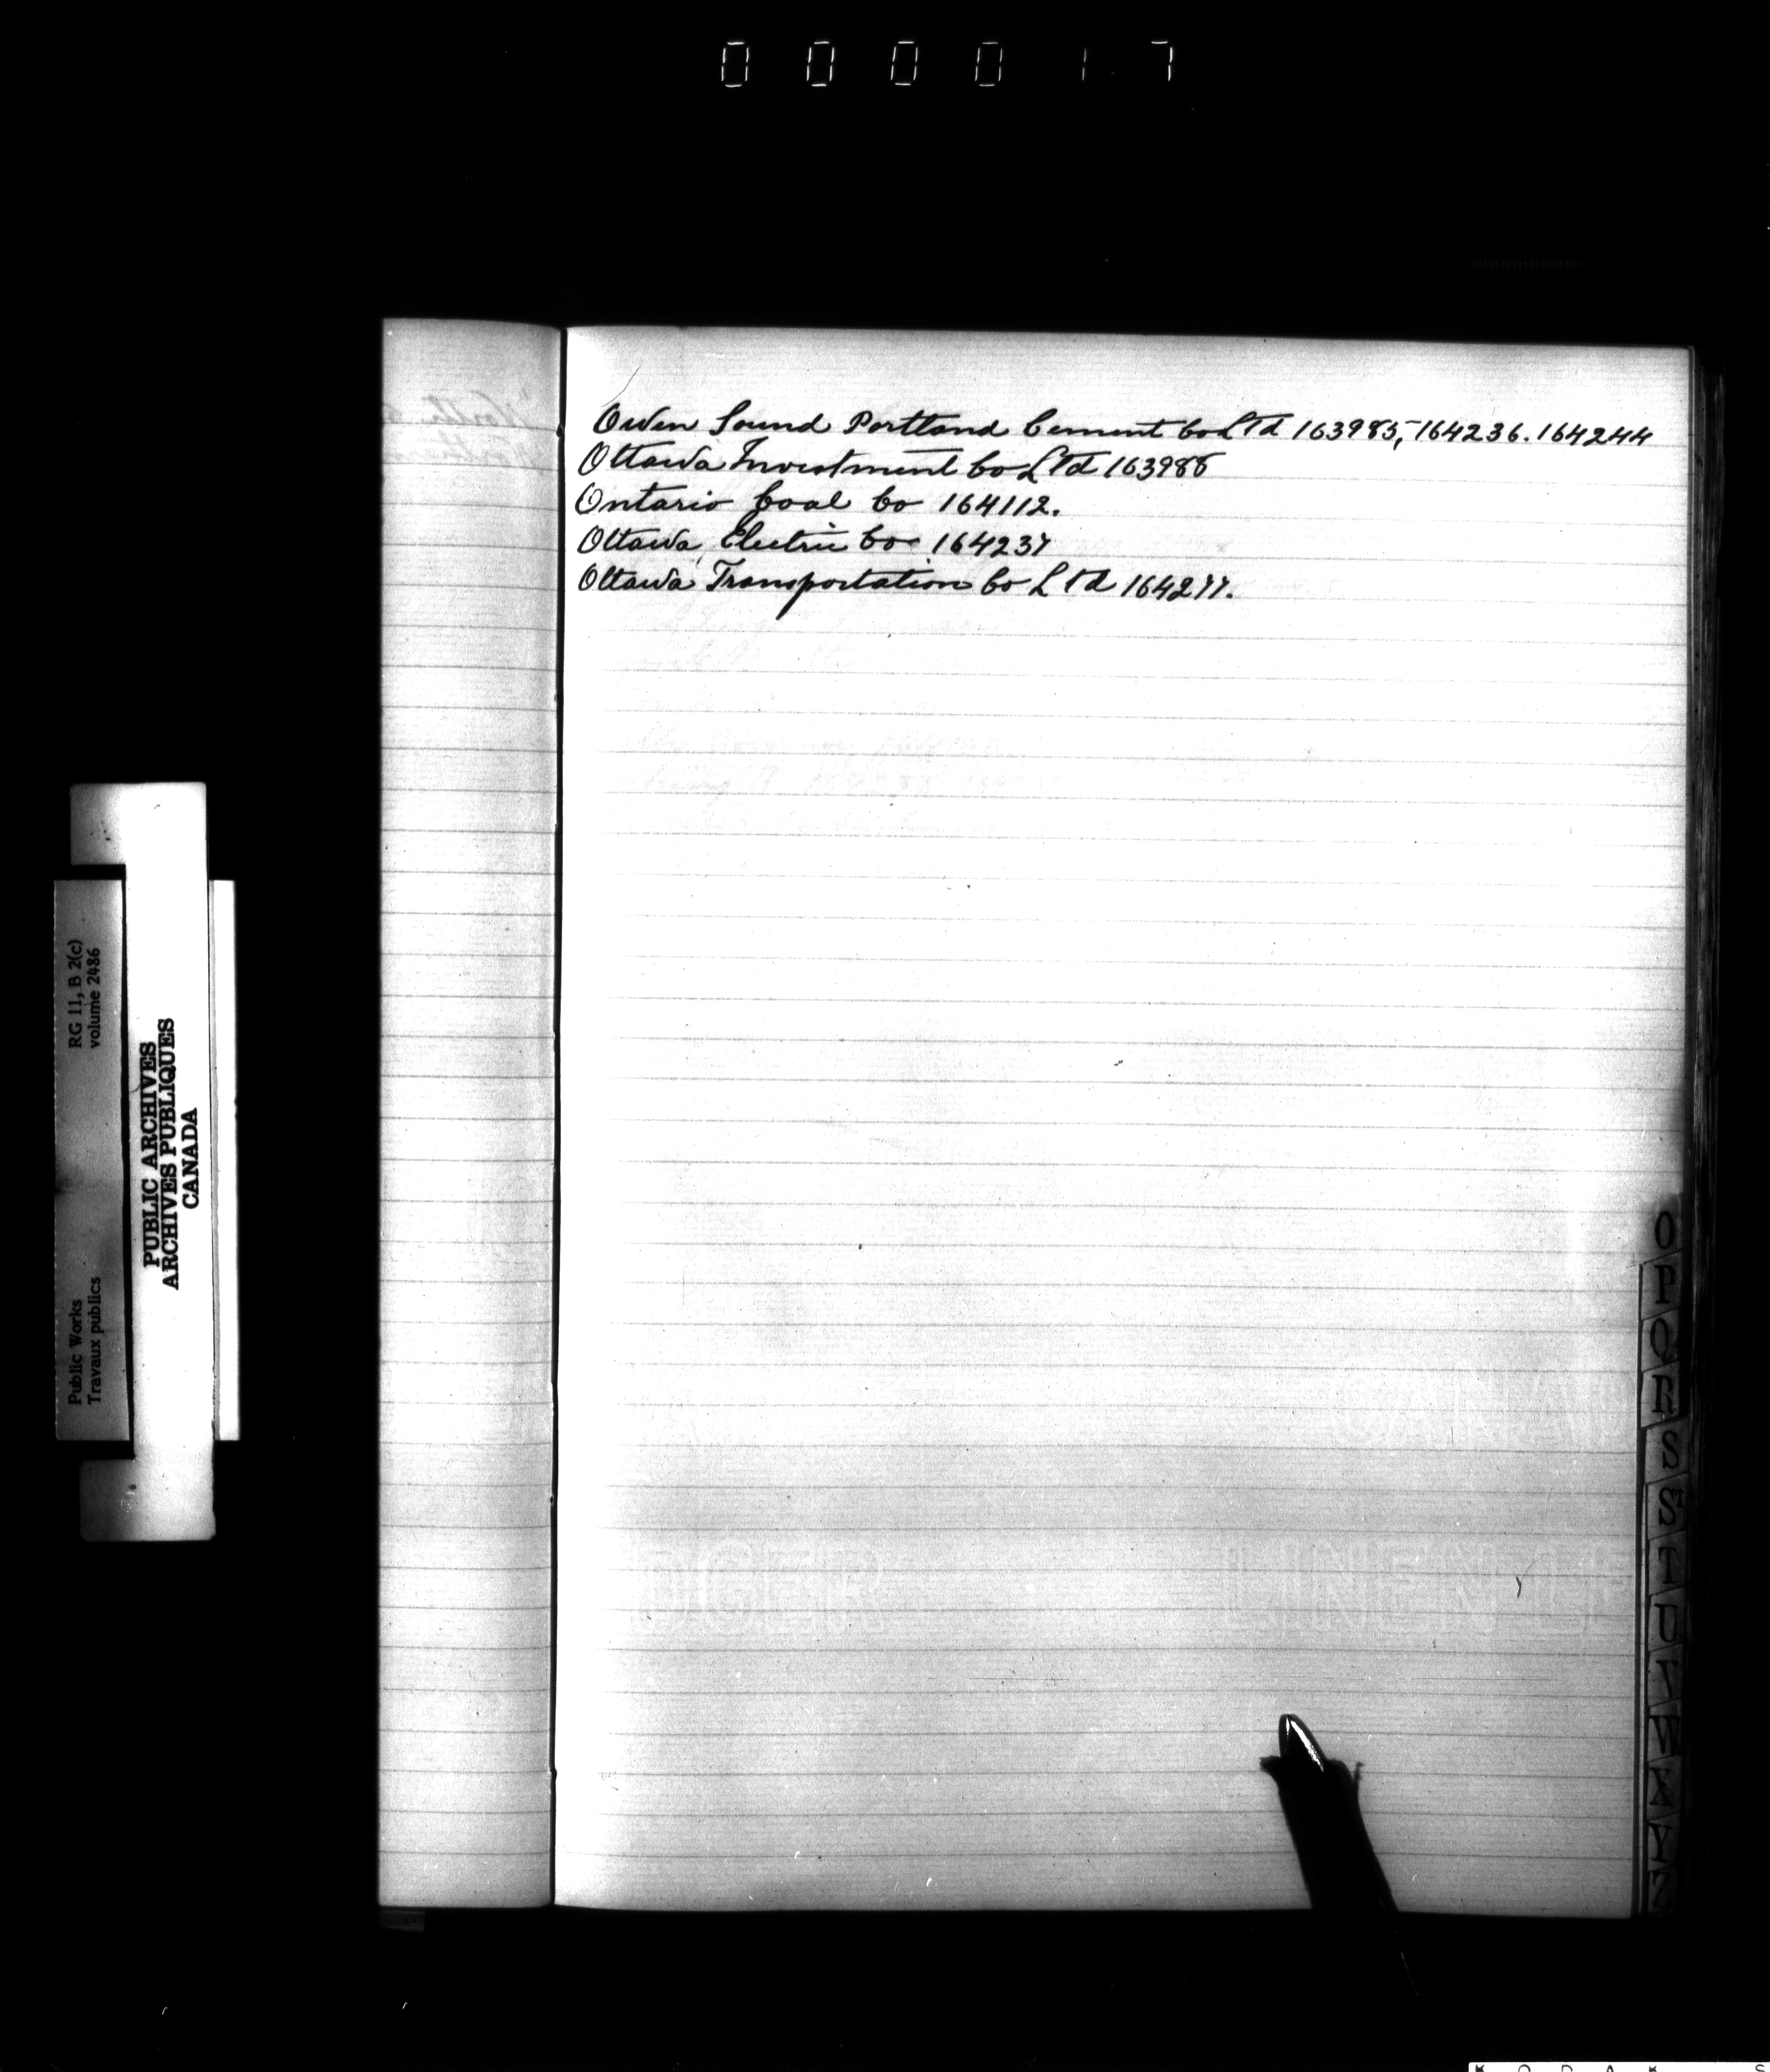 000017
Owen Sound Portland Cement Co Ltd 163985, 164236. 164244
Ottawa Investment Co Ltd 163988
Ontario Coal Co 164112.
Ottawa Electric Co 164237
Ottawa Transportation Co Ltd 164277.
RG 11, B 2(c)
volume 2486
Public Works
Travaux publics
PUBLIC ARCHIVES
ARCHIVES PUBLIQUES
CANADA
O
P
Q
R
S
S
T
U
V
W
X
Y
Z
LINEN LE
DGER
K O D A K S